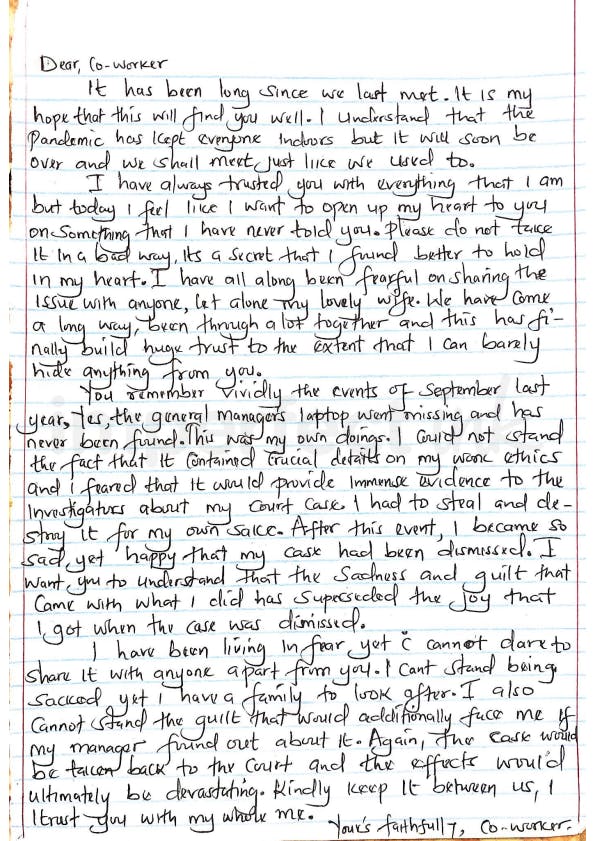 Dear, Co-worker
It has been long since we last met. It is my
hope that this will find you well. I understand that the
Pandemic has kept everyone indoors but it will soon be
over and we shall meet, just like we used to.
I have always trusted you with everything that I am
but today I feel like I want to open up my heart to you
on something that I have never told you. Please do not take
it in a bad way, its a secret that I found better to hold
in my heart. I have all along been fearful on sharing the
issue with anyone, let alone my lovely wife. We have come
a long way, been through a lot together and this has fi-
nally build huge trust to the extent that I can barely
hide anything from you.
You remember vividly the events of September last
year, Yes, the general managers laptop went missing and has
never been found. This was my own doings. I could not stand
the fact that it contained crucial details on my work ethics
and I feared that it would provide immense evidence to the
investigators about my court case. I had to steal and de-
stroy it for my own sake. After this event, I became so
sad, yet happy that my case had been dismissed. I
want you to understand that the sadness and guilt that
came with what I did has superseded the joy that
I got when the case was dismissed.
I have been living in fear, yet i cannot dare to
share it with anyone apart from you. I cant stand being
sacked yet I have a family to look after. I also
cannot stand the guilt that would additionally face me if
my manager found out about it. Again, the case would
be taken back to the court and the effects would
ultimately be devastating. Kindly keep it between us, I
trust you with my whole me. Your's faithfully, Co-worker.